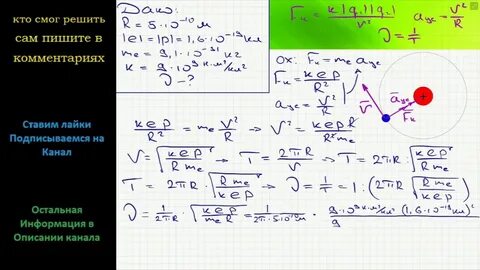 кто смог решить
сам пишите в
комментариях
Ставим лайки
Подписываемся на
Канал
Остальная
Информация в
Описании канала
Дано:
R = 5·10⁻¹⁰ м
|e| = |p| = 1,6·10⁻¹⁹ Кл
mₑ = 9,1·10⁻³¹ кг
k = 9·10⁹ Н·м²/Кл²
ν - ?
Fₖ = k|q₁||q₁|/r² aцс = v²/R
ν = 1/T
ox: Fₖ = mₑ aцс
Fₖ = kep/R²
aцс = v²/R
v⃗ a⃗цс
F⃗ₖ
kep/R² = mₑ v²/R => v² = kepR/R²mₑ
v = √(kep/Rmₑ) T = 2πR/v => T = 2πR·
T = 2πR·√(Rmₑ/kep) => ν = 1/T = 1:(2πR√(Rmₑ/kep))
ν = 1/2πR·√(kep/mₑR) = 1/2π·5·10⁻¹⁰м · 9·10⁹ Н·м²/Кл²·(1,6·10⁻¹⁹Кл)²
9